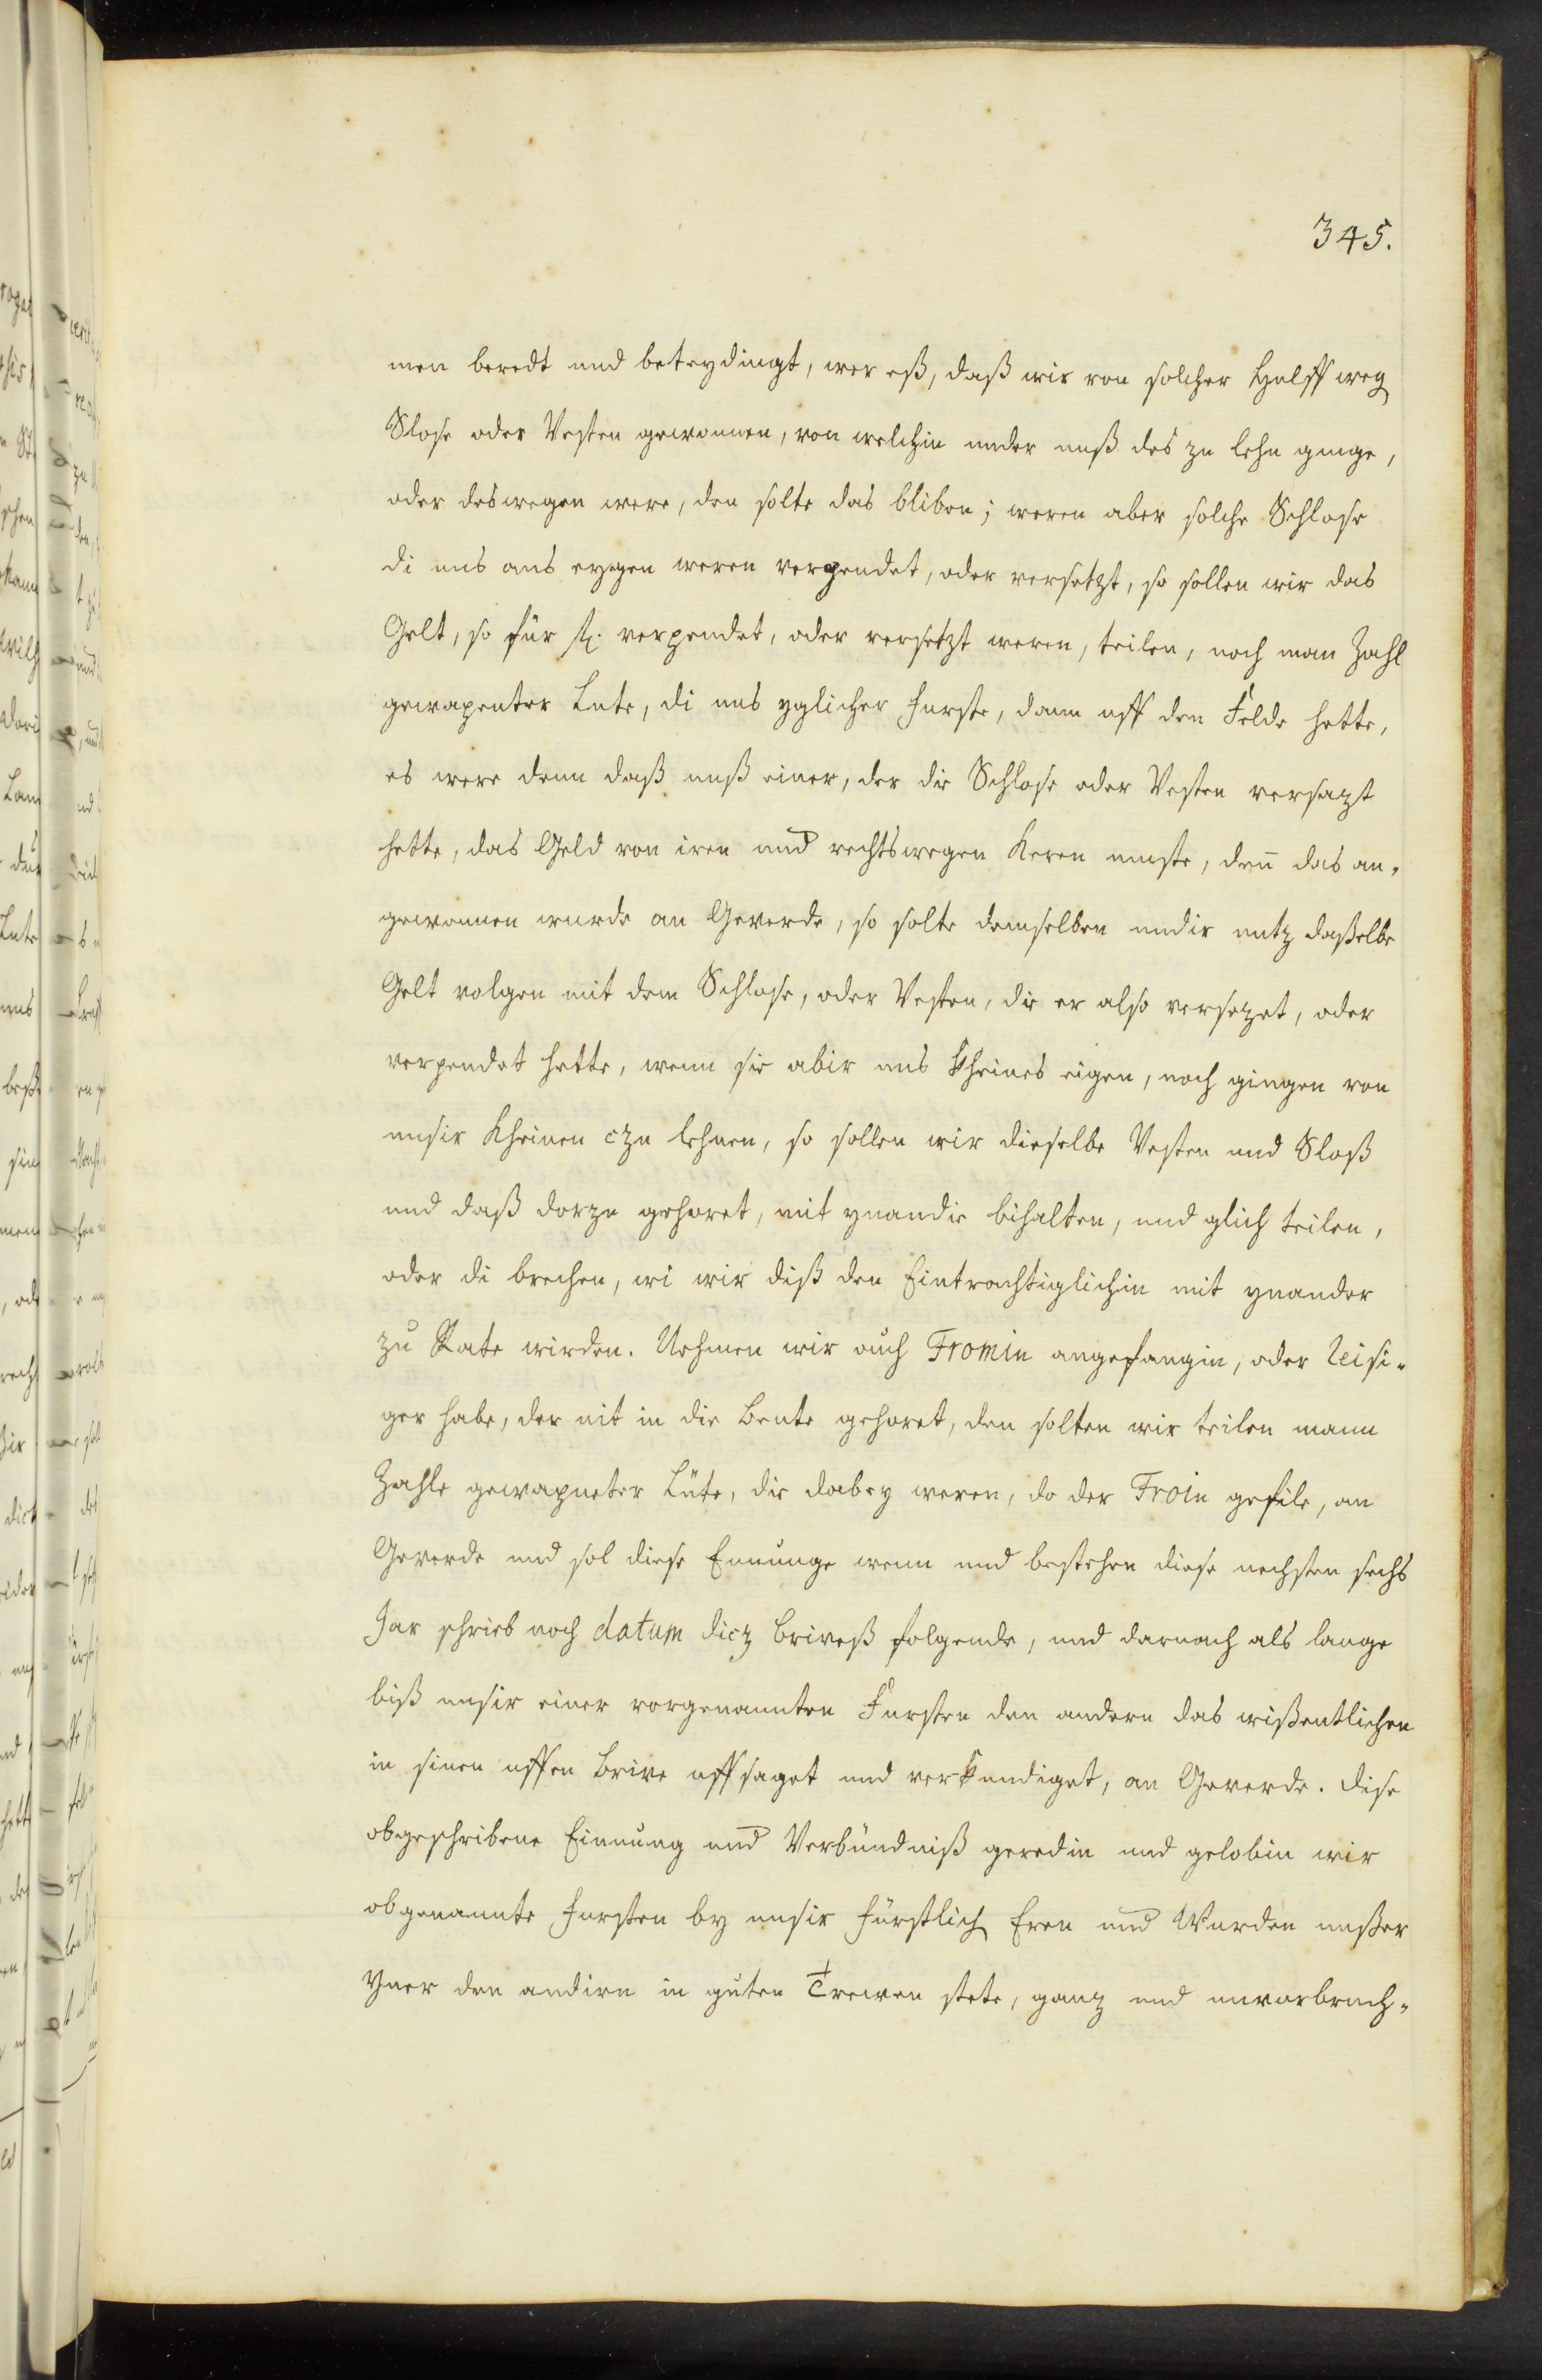 345.
men beredt und beteydingt, wer eß, daß wir von solcher Hulff weg
Slose oder Vesten gewonnen, von welchin under unß des zu lehn ginge,
oder deswegen were, den solte das bliben; weren aber solche Schlose
di uns ans eygen weren verpendet, oder versetzt, so sollen wir das
Gelt, so für st. verpendet, oder versetzt weren, teilen, noch man Zahl
gewapenter Lute, di uns yglicher Furste, dann uff dem Felde hette,
es were denn daß unß einer, der die Schlose oder Vesten versazt
hette, das Geld von iren und rechtswegen keren muste, den̄ das an-
gewonnen wurde an Geverde, so solte demselben undir nutz daßelbe
Gelt volgen mit dem Schlose, oder Vesten, die er also versezet, oder
verpendet hette, wenn sie abir uns kheines eigen, noch gingen von
unsir kheinen czu lehnen, so sollen wir dieselbe Vesten und Sloß
und daß dorzu gehoret, mit ynandir bihalten, und glich teilen,
oder di brechen, wi wir diß den Eintrachtiglichin mit ynander
zu Rate wirden. Nehmen wir auch Fromin angefangin, oder reisi-
ger habe, der nit in die Beute gehoret, den solten wir teilen mann
Zahle gewapneter Lüte, die dabey weren, do der Froin gefile, an
Geverde und sol diese Ennunge wern und bestehen diese nechsten sechs
Jar schrieb noch datum dicz briveß folgende, und darnach als lange
biß unsir einer vorgenannten Fursten den andern das wißentlichen
in sinen uffen brive uffsaget und verkundiget, an Geverde. Dise
obgeschribene Einnung und Verbündniß geredin und gelobin wir
obgenannte Fursten by unsir Fürstlich Eren und Wurden unßer
Yner den andirn in guten Trewen stete, ganz und unvorbruch-